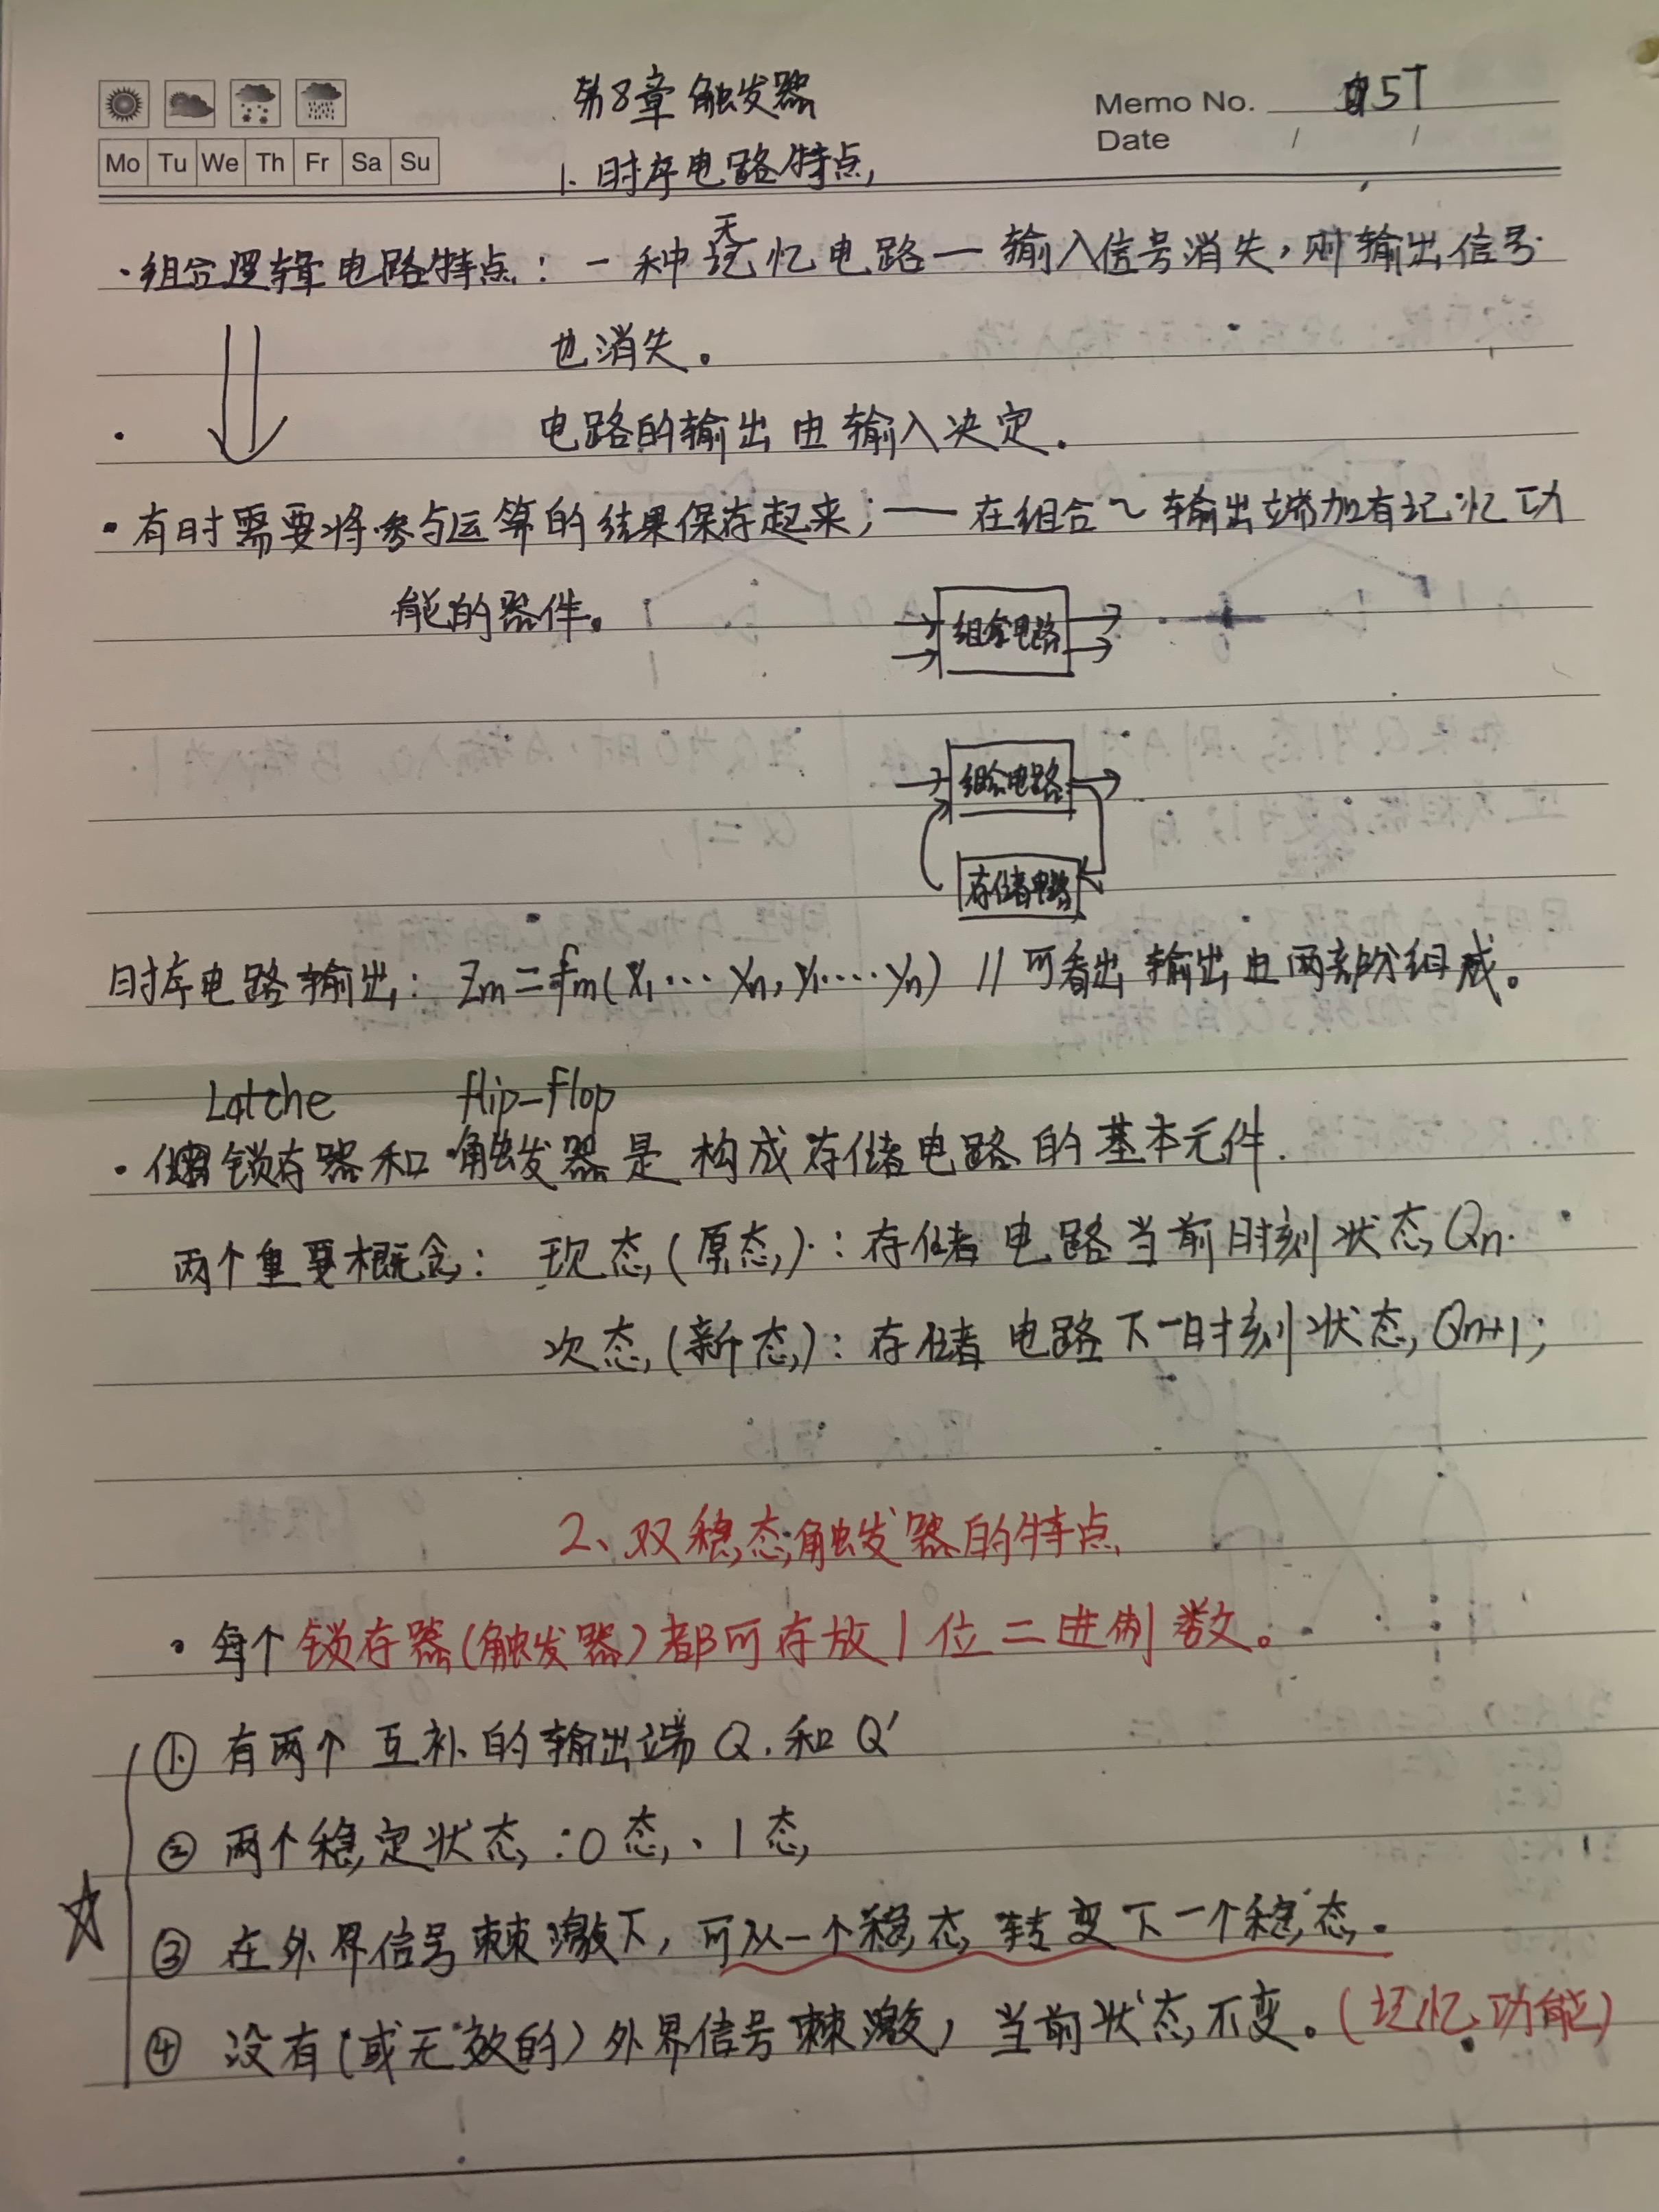 第8章 触发器
Memo No. 5T
Date / /
Mo Tu We Th Fr Sa Su
1. 时序电路特点
·组合逻辑电路特点：一种无记忆电路一输入信号消失，则输出信号
也消失。
电路的输出由输入决定.
·有时需要将参与运算的结果保存起来；——在组合~输出端加有记忆功
能的器件。
组合电路
组合电路
存储电路
时序电路输出：Zm=fm(x1…xn,y1…yn) // 可看出输出由两部分组成。
Latche flip-flop
·锁存器和触发器是构成存储电路的基本元件.
两个重要概念：现态(原态)：存储电路当前时刻状态Qn.
次态(新态)：存储电路下一时刻状态,Qn+1;
2、双稳态触发器的特点
·每个锁存器(触发器)都可存放1位二进制数。
① 有两个互补的输出端Q.和Q'
② 两个稳定状态：0态、1态
☆ ③ 在外界信号棘激下，可从一个稳态转变下一个稳态。
④ 没有(或无效的)外界信号棘激，当前状态不变。(记忆功能)